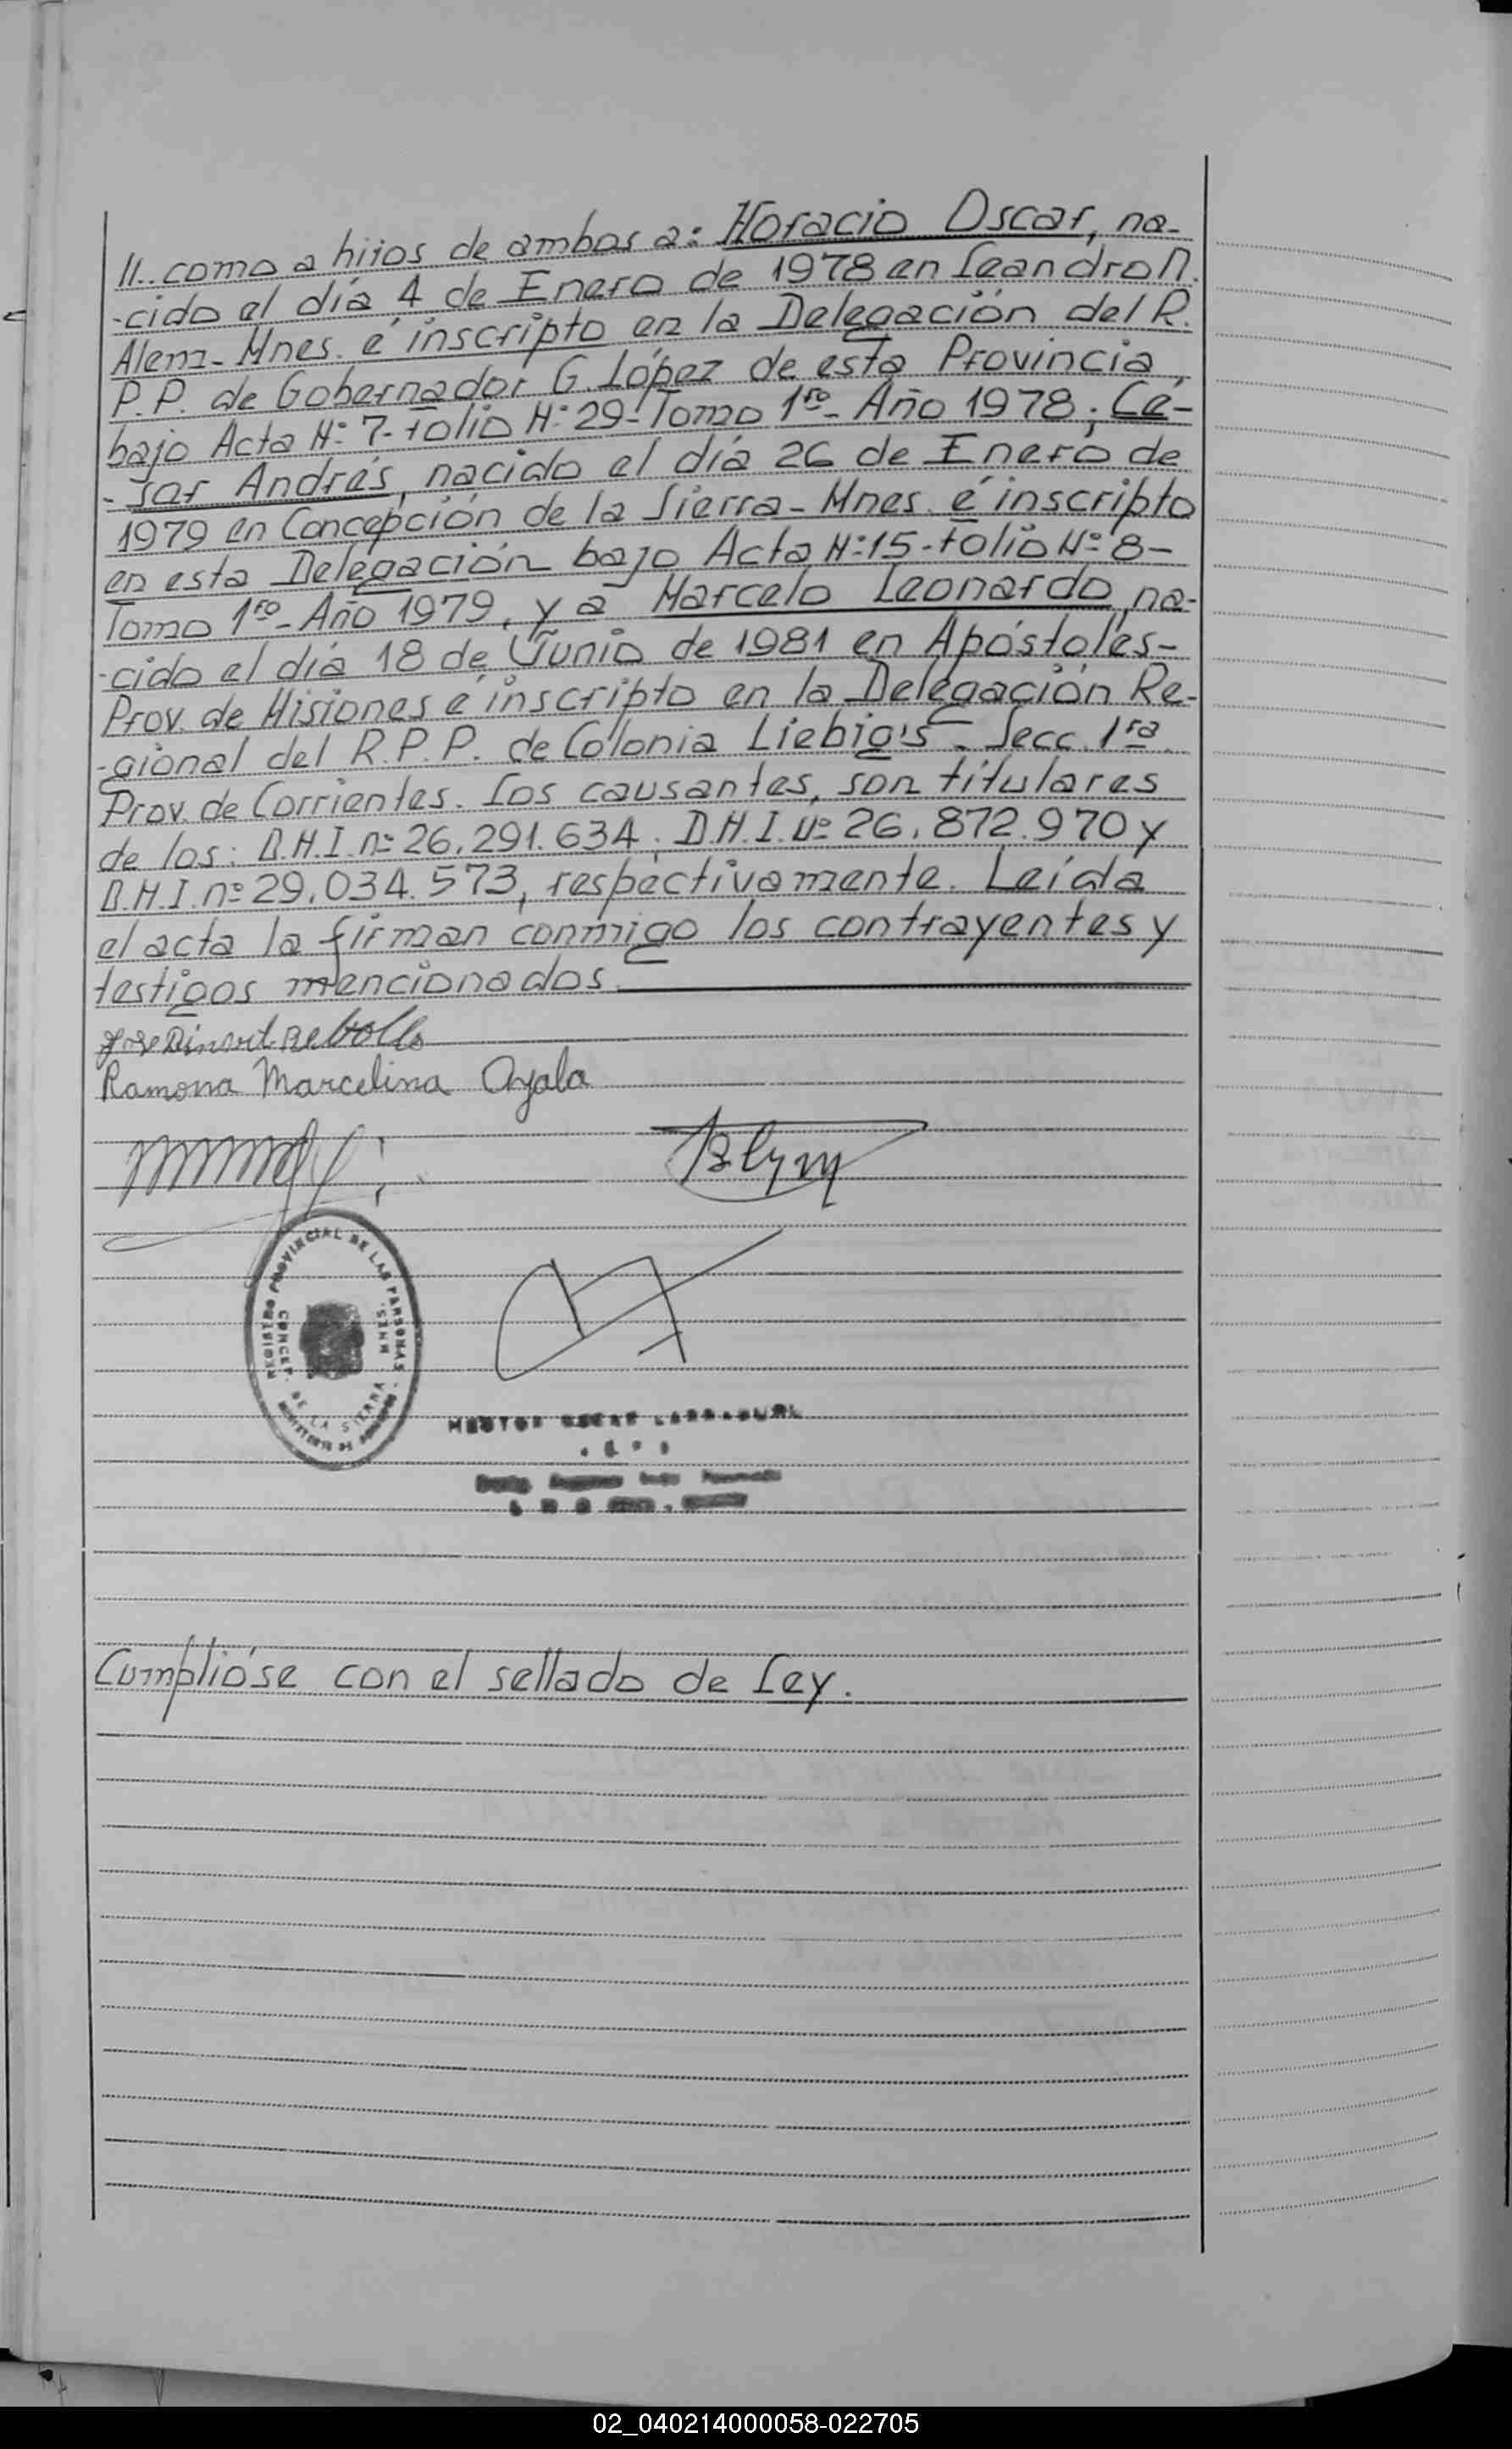 11.. como a hijos de ambos a: Horacio Oscar, na-
-cido el día 4 de Enero de 1978 en Leandro N.
Alem- Mnes. é inscripto en la Delegación del R.
P.P. de Gobernador G. López de esta Provincia,
bajo Acta N: 7- Folio N: 29- Tomo 1ro- Año 1978; Cé-
-sar Andrés, nacido el día 26 de Enero de
1979 en Concepción de la Sierra- Mnes. é inscripto
en esta Delegación bajo Acta N: 15- Folio Nº 8-
Tomo 1ro- Año 1979, y a Marcelo Leonardo, na-
-cido el día 18 de Junio de 1981 en Apóstoles-
Prov. de Misiones é inscripto en la Delegación Re-
-gional del R.P.P. de Colonia Liebig's- Secc. 1ra
Prov. de Corrientes. Los causantes, son titulares
de los: D.N.I. nº 26.291.634; D.N.I. Nº 26.872.970 y
D.N.I. nº 29.034.573, respectivamente. Leída
el acta la firman conmigo los contrayentes y
testigos mencionados.
Rebollo
Ramona Marcelina Ayala
REGISTRO PROVINCIAL DE LAS PERSONAS
CONCEP. DE LA SIERRA
MNES.
Cumplióse con el sellado de Ley.
02_040214000058-022705